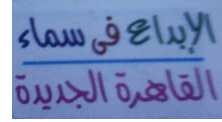 الإبداع فى سماء
القاهرة الجديدة